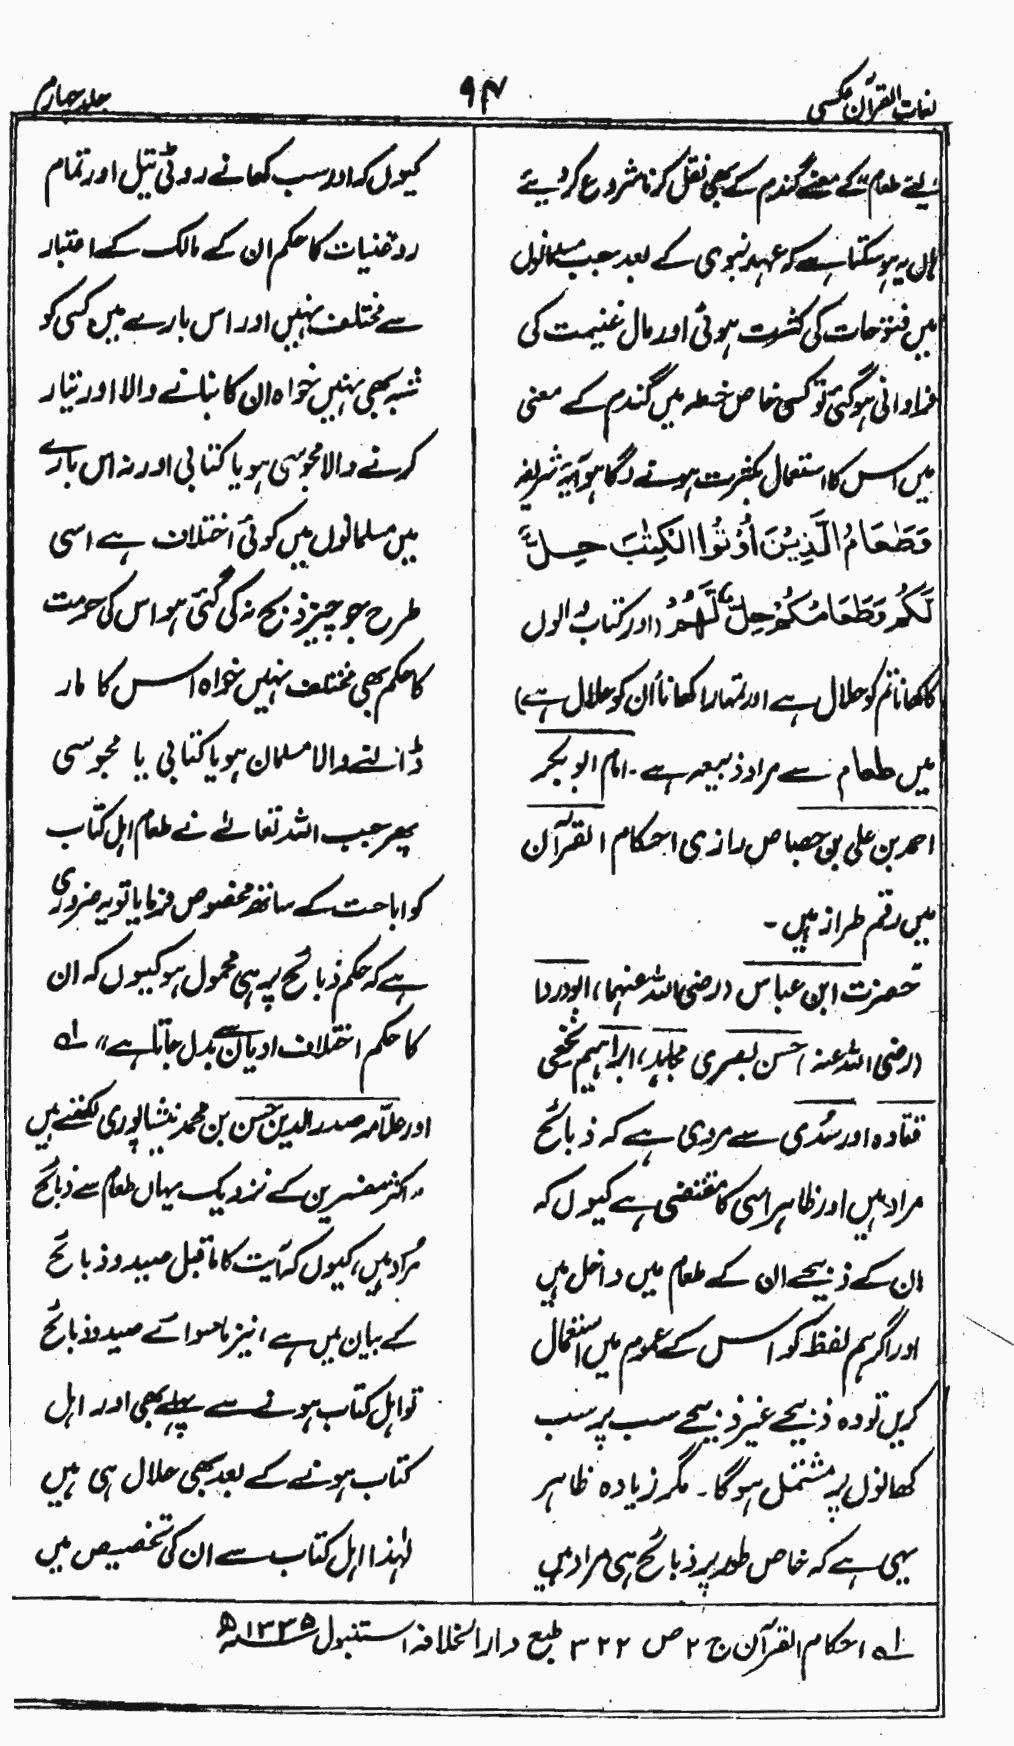 لغات القرآن عکسی
۹۴
جلد چہارم
لئے طعام کے معنے گندم کے بھی نقل کرنا شروع کر دیئے
ہاں یہ ہو سکتا ہے کہ عہد نبوی کے بعد جب مسلمانوں
میں فتوحات کی کثرت ہوئی اور مال غنیمت کی
فراوانی ہو گئی تو کسی خاص خطہ میں گندم کے معنی
میں اس کا استعمال بکثرت ہونے لگا ہو آیۂ شریفہ
وَطَعَامُ الَّذِيْنَ اُوْتُوا الْكِتٰبَ حِلٌّ
لَّكُمْ وَطَعَامُكُمْ حِلٌّ لَّهُمْ (اور کتاب والوں
کا کھانا تم کو حلال ہے اور تمہارا کھانا اُن کو حلال ہے)
میں طعام سے مراد ذبیحہ ہے۔ امام ابو بکر
احمد بن علی بن جصاص رازی احکام القرآن
میں رقم طراز ہیں۔
حضرت ابن عباس (رضی اللہ عنہما)، ابودردا
(رضی اللہ عنہ) حسن بصری مجاہد، ابراہیم نخعی
قتادہ اور سُدی سے مروی ہے کہ ذبائح
مراد ہیں اور ظاہر اسی کا مقتضی ہے کیوں کہ
ان کے ذبیحے ان کے طعام میں داخل ہیں
اور اگر ہم لفظ کو اس کے عموم میں استعمال
کریں تو وہ ذبیحے غیر ذبیحے سب پر سب
کھانوں پر مشتمل ہو گا۔ مگر زیادہ ظاہر
یہی ہے کہ خاص طور پر ذبائح ہی مراد ہیں
کیوں کہ اور سب کھانے روٹی تیل اور تمام
روغنیات کا حکم ان کے مالک کے اعتبار
سے مختلف نہیں اور اس بارے میں کسی کو
شبہ بھی نہیں خواہ ان کا بنانے والا اور تیار
کرنے والا مجوسی ہو یا کتابی اور نہ اس بارے
میں مسلمانوں میں کوئی اختلاف ہے اسی
طرح جو چیز ذبح نہ کی گئی ہو اس کی حرمت
کا حکم بھی مختلف نہیں خواہ اس کا مار
ڈالنے والا مسلمان ہو یا کتابی یا مجوسی
پھر جب اللہ تعالےٰ نے طعام اہل کتاب
کو اباحت کے ساتھ مخصوص فرمایا تو یہ ضروری
ہے کہ حکم ذبائح پر ہی محمول ہو کیوں کہ ان
کا حکم اختلاف ادیان سے بدل جاتا ہے" ۱ہ
اور علّامہ صدر الدین حسن بن محمد نیشاپوری لکھتے ہیں
"اکثر مفسرین کے نزدیک یہاں طعام سے ذبائح
مُراد ہیں، کیوں کہ آیت کا ماقبل صید و ذبائح
کے بیان میں ہے، نیز ماسوائے صید و ذبائح
تو اہل کتاب ہونے سے پہلے بھی اور اہل
کتاب ہونے کے بعد بھی حلال ہی ہیں
لہٰذا اہل کتاب سے ان کی تخصیص میں
۱ہ احکام القرآن ج ۲ ص ۳۲۲ طبع دار الخلافہ استنبول ۱۳۳۵ھ